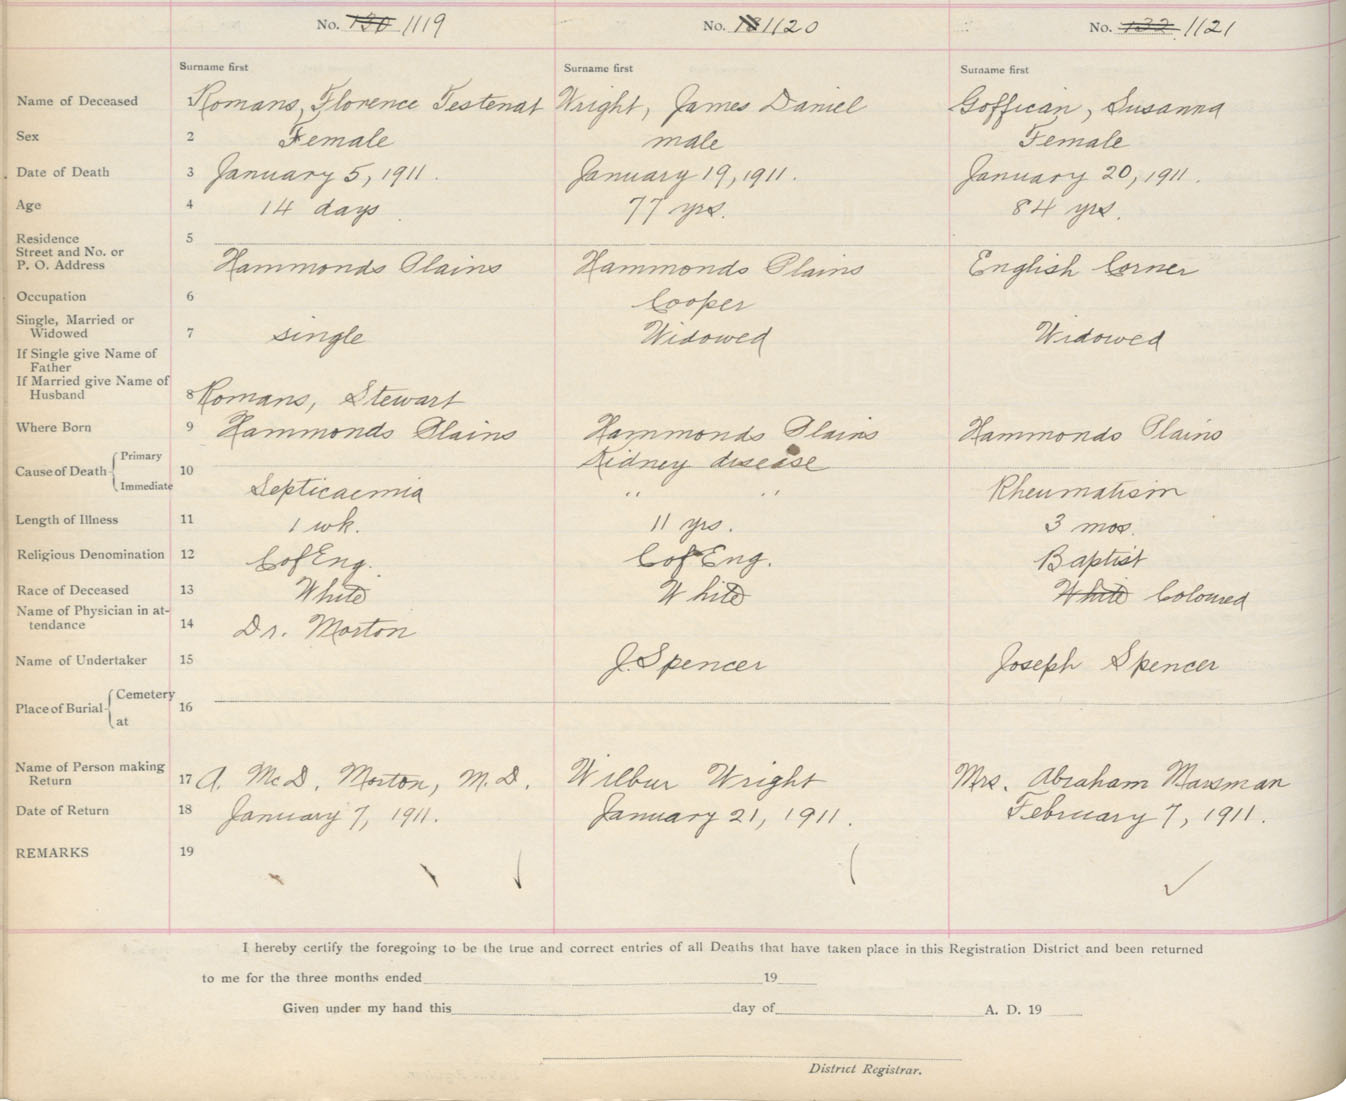 No. 130 1119 No. 1120 No. 132 1121
Surname first Surname first Surname first
Name of Deceased 1 Romans, Florence Testenat Wright, James Daniel Goffican, Susanna
Sex 2 Female male Female
Date of Death 3 January 5, 1911. January 19, 1911. January 20, 1911.
Age 4 14 days. 77 yrs. 84 yrs.
Residence 5
Street and No. or
P. O. Address Hammonds Plains Hammonds Plains English Corner
Occupation 6 Cooper
Single, Married or
Widowed 7 single Widowed Widowed
If Single give Name of
Father
If Married give Name of
Husband 8 Romans, Stewart
Where Born 9 Hammonds Plains Hammonds Plains Hammonds Plains
Cause of Death Primary 10 Kidney disease
Immediate Septicaemia " " Rheumatism
Length of Illness 11 1 wk. 11 yrs. 3 mos.
Religious Denomination 12 C of Eng. C of Eng. Baptist
Race of Deceased 13 White White White Coloured
Name of Physician in at-
tendance 14 Dr. Morton
Name of Undertaker 15 J. Spencer Joseph Spencer
Place of Burial Cemetery 16
at
Name of Person making
Return 17 A. McD. Morton, M.D. Wilbur Wright Mrs. Abraham Marsman
Date of Return 18 January 7, 1911. January 21, 1911. February 7, 1911.
REMARKS 19
I hereby certify the foregoing to be the true and correct entries of all Deaths that have taken place in this Registration District and been returned
to me for the three months ended 19
Given under my hand this day of A. D. 19
District Registrar.